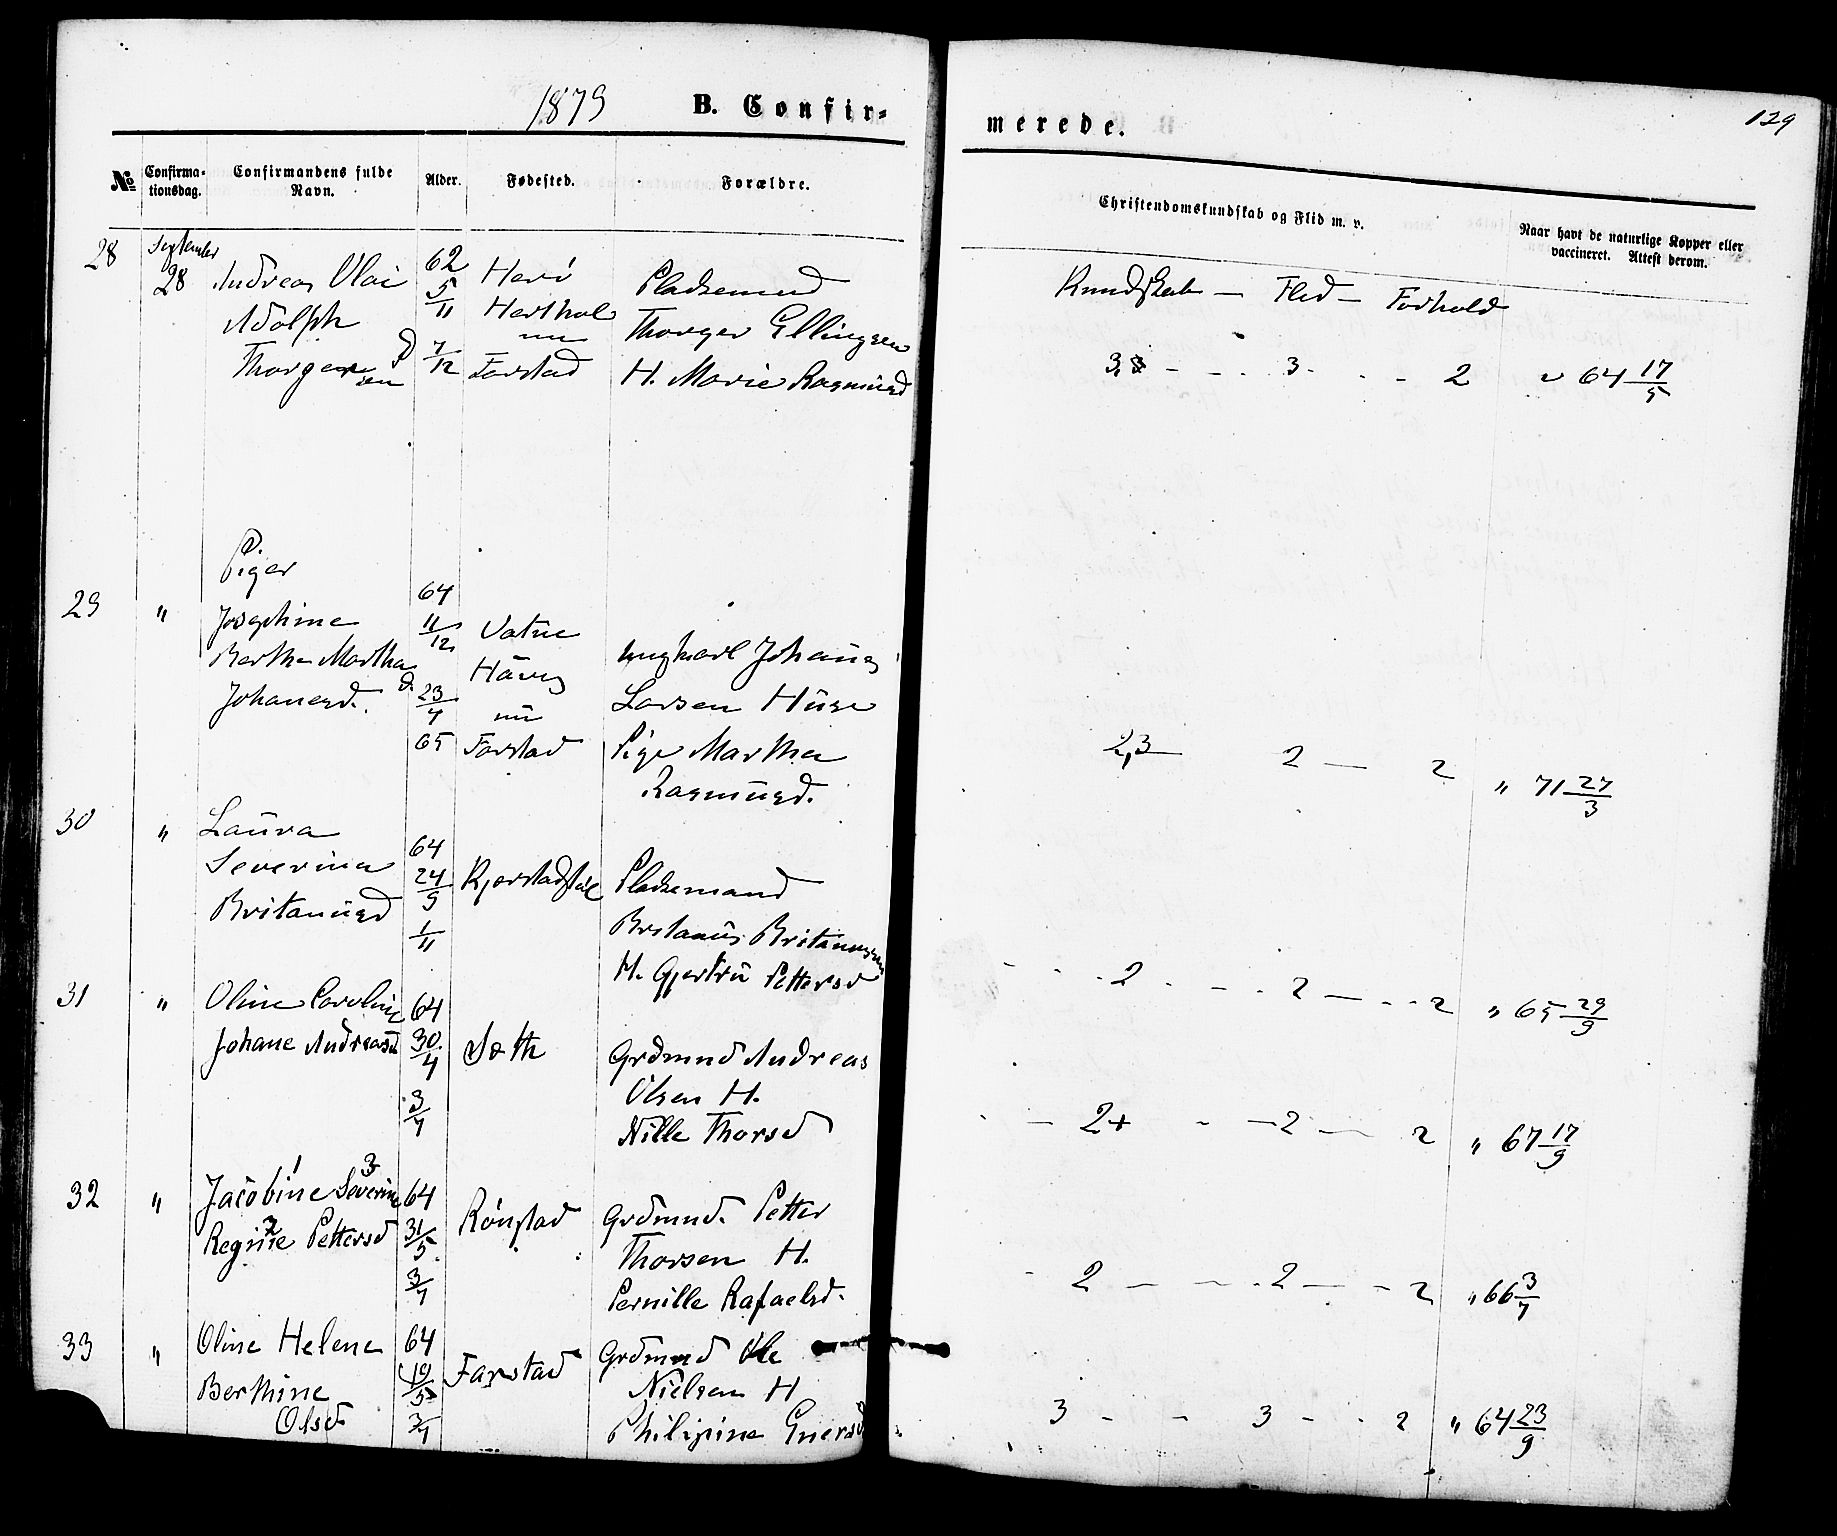 1879 B. Confir-
merede. 129
No Confirma-tionsdag. Confirmandens fulde Navn. Alder. Fødested. Forældre. Christendomskundskab og Flid m. v. Naar havt de naturlige Kopper eller vaccineret. Attest derom.
28 September 28 Andreas Olai 62 Herö Pladsemnd Kundskab — Flid — Forhold
Adolph 5/11 Thorger Ellingsen
Thorgersen d 7/12 Farstad H. Marie Rasmusd 3, - - . 3 - . - 2 64 17/5
Piger
29 " Josephine 64 11/12 Vatne
Berthe Martha ungkarl Johannes
Johanesd. d. 23/4 nu Larsen Huse
65 Farstad Pige Martha 2,3 — 2 — 2 " 71 27/3
Rasmusd.
30 " Laura 64
Severina 24/9 Pladsemand
Britanusd 1/11 Britanus Britanussen
H. Gjertru Pettersd 2 . - . 2 — . . 2 " 65 29/9
31 " Oline Caroline 64
Johane Andreasd 30/4 Sæth Grdmnd Andreas
Olsen H.
3/7 Nille Thorsd — 2+ - — 2 — 2 " 67 17/9
32 " Jacobine 1 Severine 3 64 Rönstad Grdmnd. Petter
Regine 2 Pettersd 31/5 Thorsen H.
3/7 Pernille Rafaelsd. 2 — — . 2 — - 2 " 66 3/7
33 " Oline Helene 64 Farstad Grdmnd Ole
Berthine 19/5 Nielsen H
Olsd 3/7 Philipine Enersd 3 - - 3 - . 2 " 64 23/9